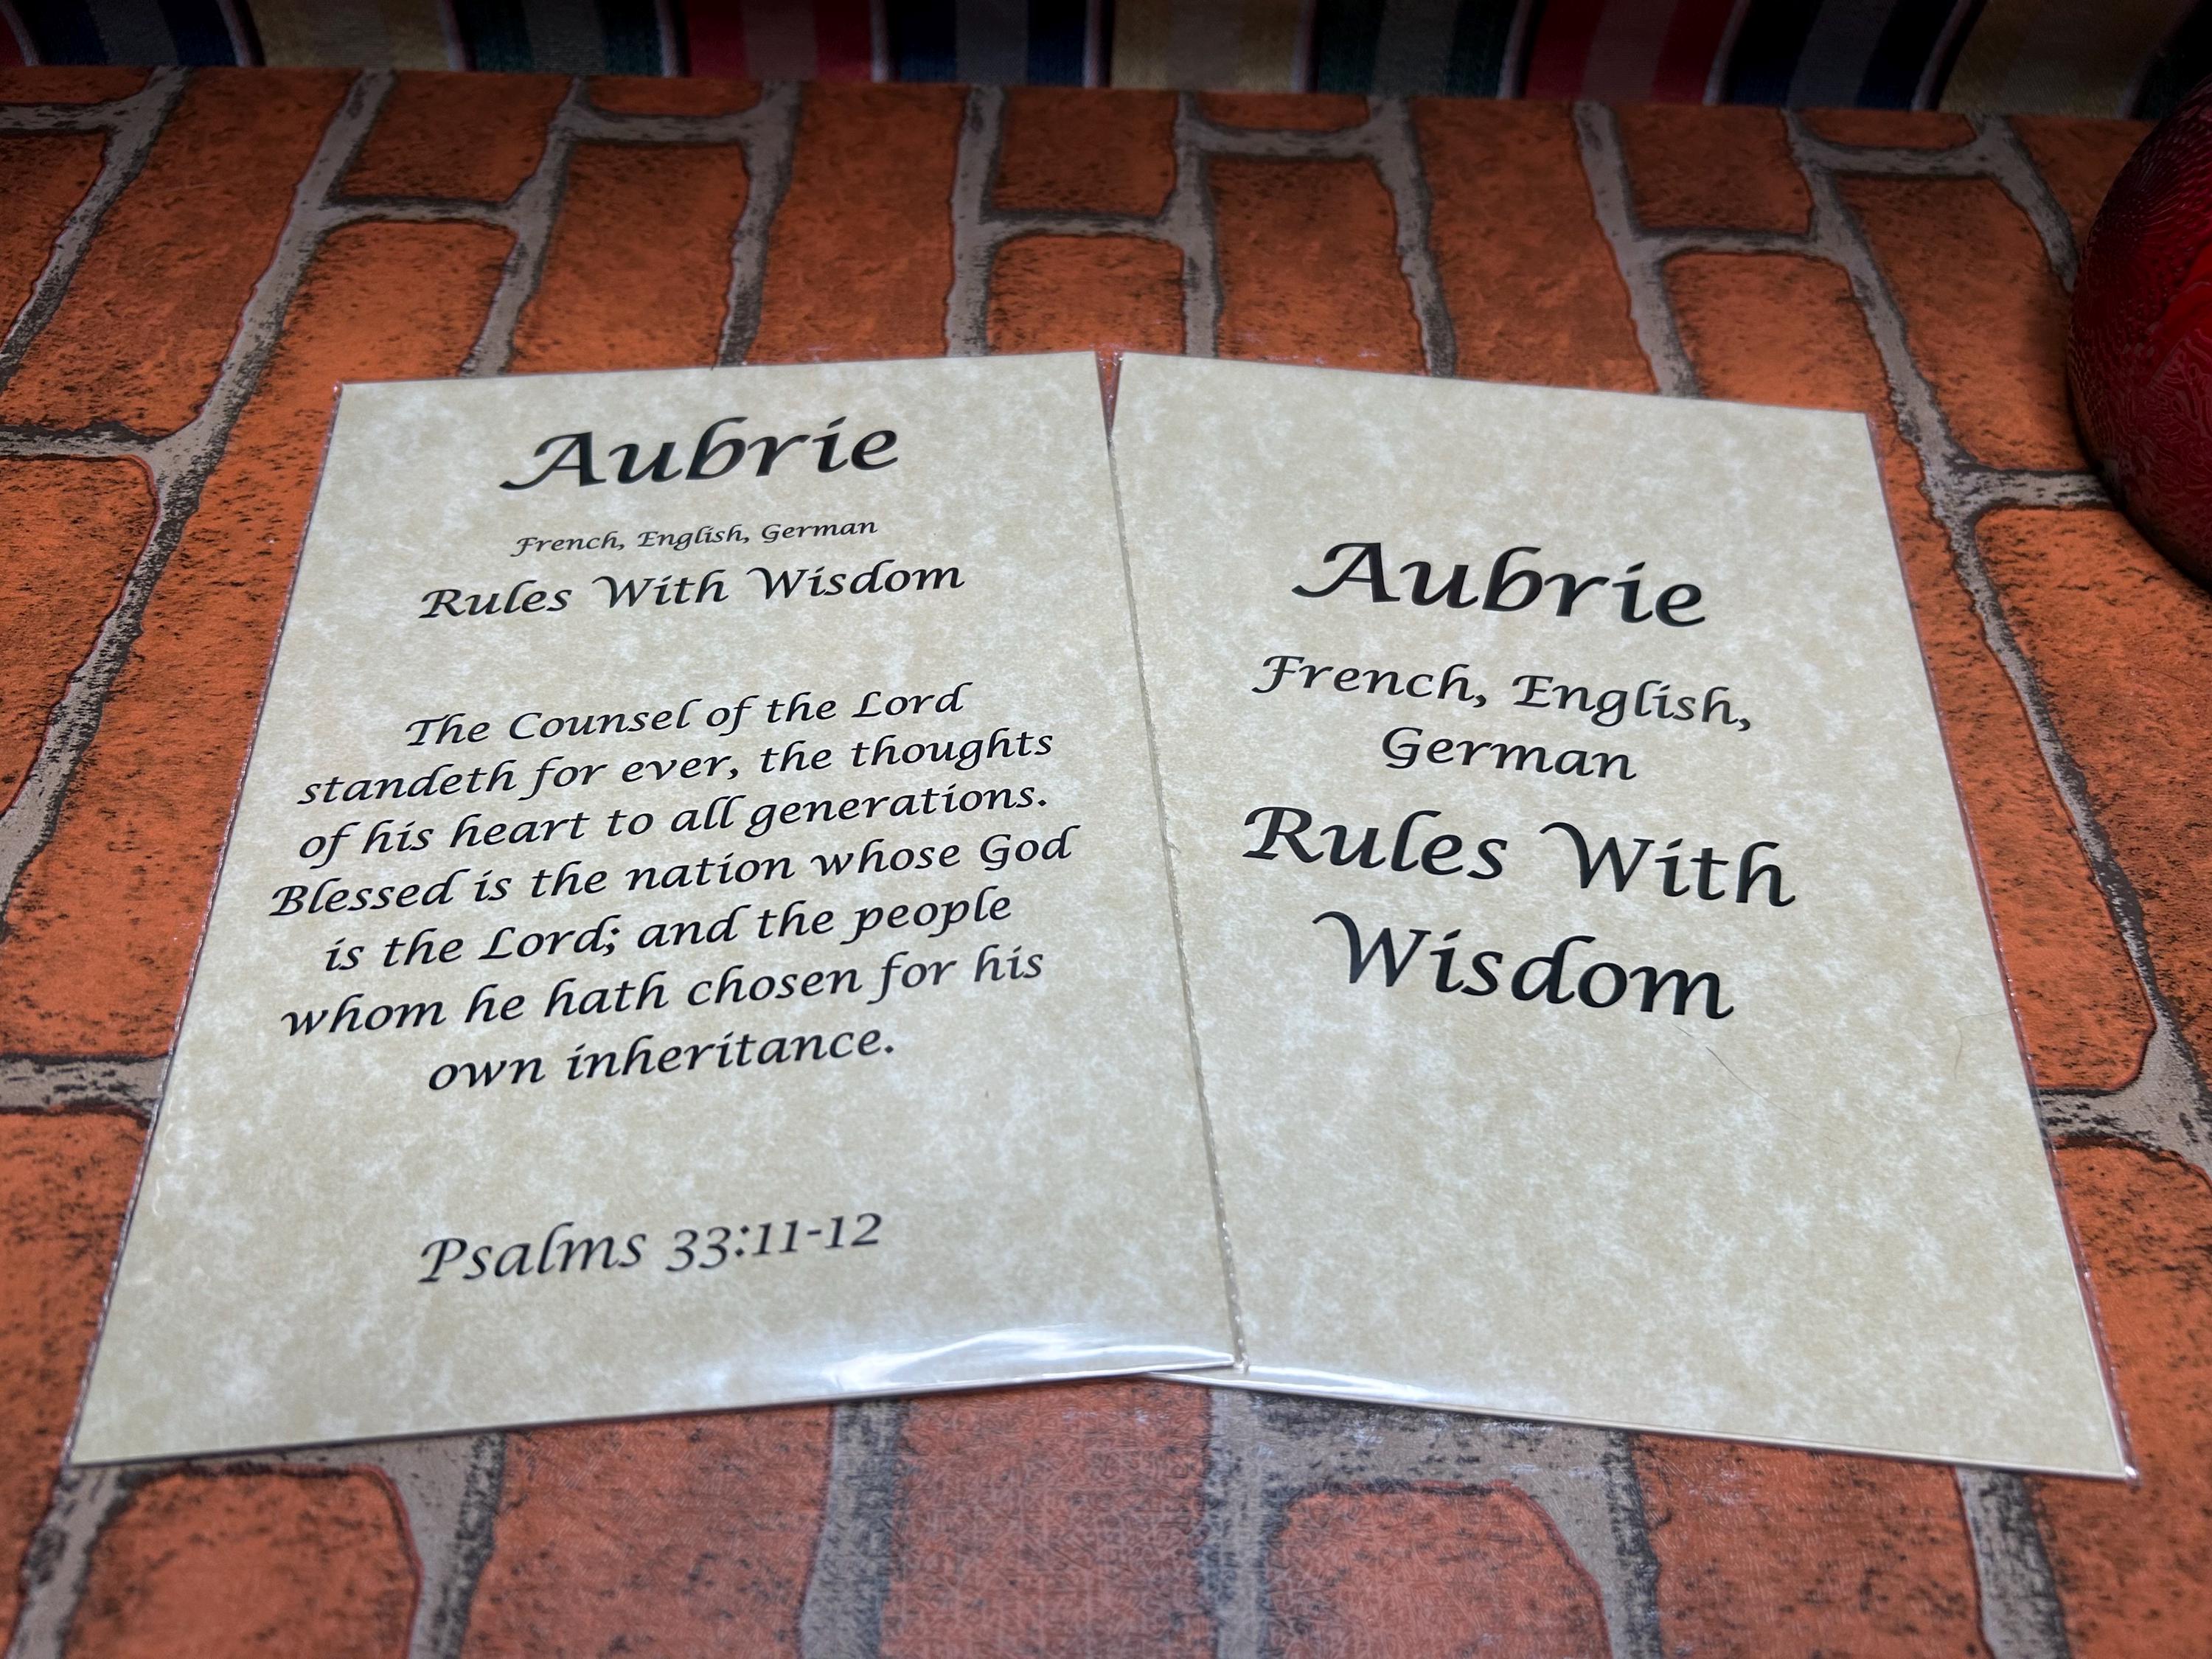 Aubrie
French, English, German
Rules With Wisdom
The Counsel of the Lord
standeth for ever, the thoughts
of his heart to all generations.
Blessed is the nation whose God
is the Lord; and the people
whom he hath chosen for his
own inheritance.
Psalms 33:11-12
Aubrie
French, English,
German
Rules With
Wisdom